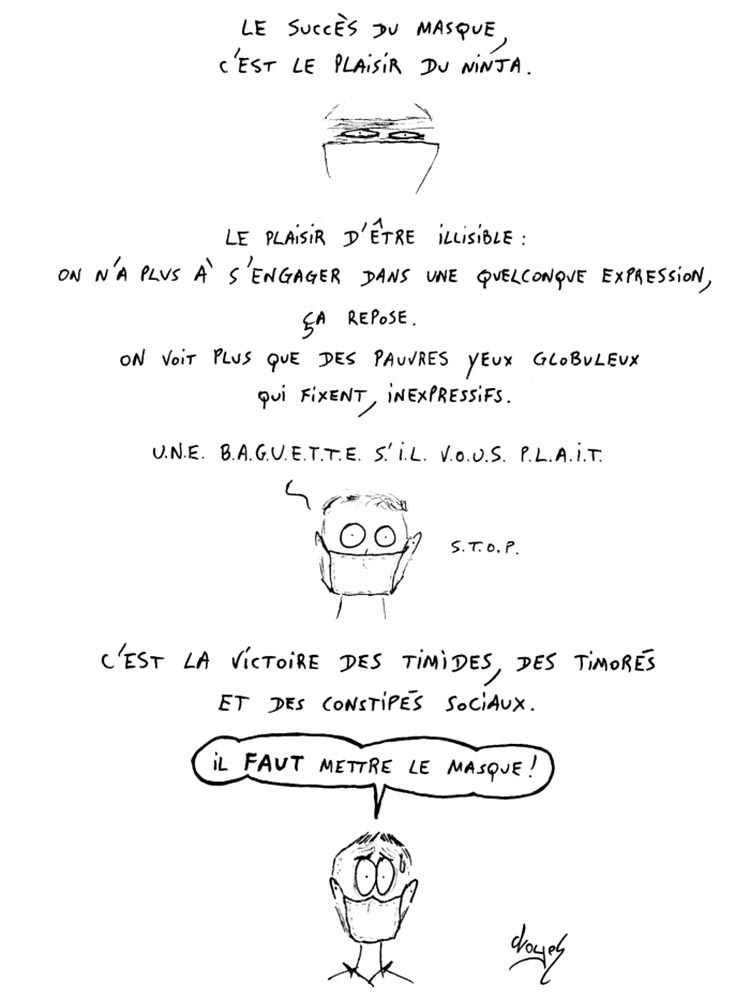 LE SUCCÈS DU MASQUE,
C'EST LE PLAISIR DU NINJA.
LE PLAISIR D'ÊTRE ILLISIBLE :
ON N'A PLUS À S'ENGAGER DANS UNE QUELCONQUE EXPRESSION,
ÇA REPOSE.
ON VOIT PLUS QUE DES PAUVRES YEUX GLOBULEUX
QUI FIXENT, INEXPRESSIFS.
U.N.E. B.A.G.U.E.T.T.E. S.'I.L. V.O.U.S. P.L.A.I.T.
S.T.O.P.
C'EST LA VICTOIRE DES TIMIDES, DES TIMORÉS
ET DES CONSTIPÉS SOCIAUX.
IL FAUT METTRE LE MASQUE !